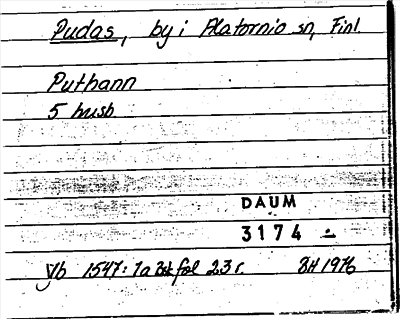 Pudas, by i Alatornio sn, Finl.
Puthann
5 husb.
DAUM
3174
Jb 1547: 1a fol 23 r. BH 1976